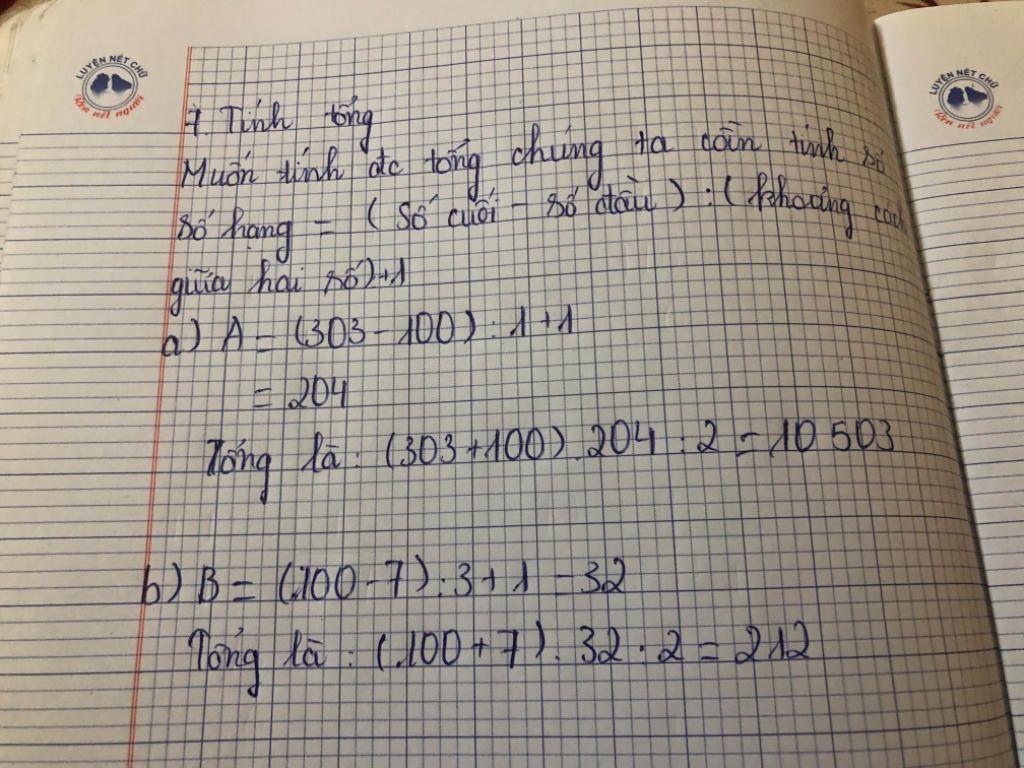 LUYỆN NÉT CHỮ
Rèn nết người
LUYỆN NÉT CHỮ
Rèn nết người
7. Tính tổng
Muốn tính đc tổng chúng ta cần tính số
số hạng = (số cuối - số đầu) : (khoảng cách
giữa hai số) + 1
a) A = (303 - 100) : 1 + 1
= 204
Tổng là : (303 + 100) . 204 : 2 = 10 503
b) B = (100 - 7) : 3 + 1 = 32
Tổng là : (100 + 7) . 32 : 2 = 212